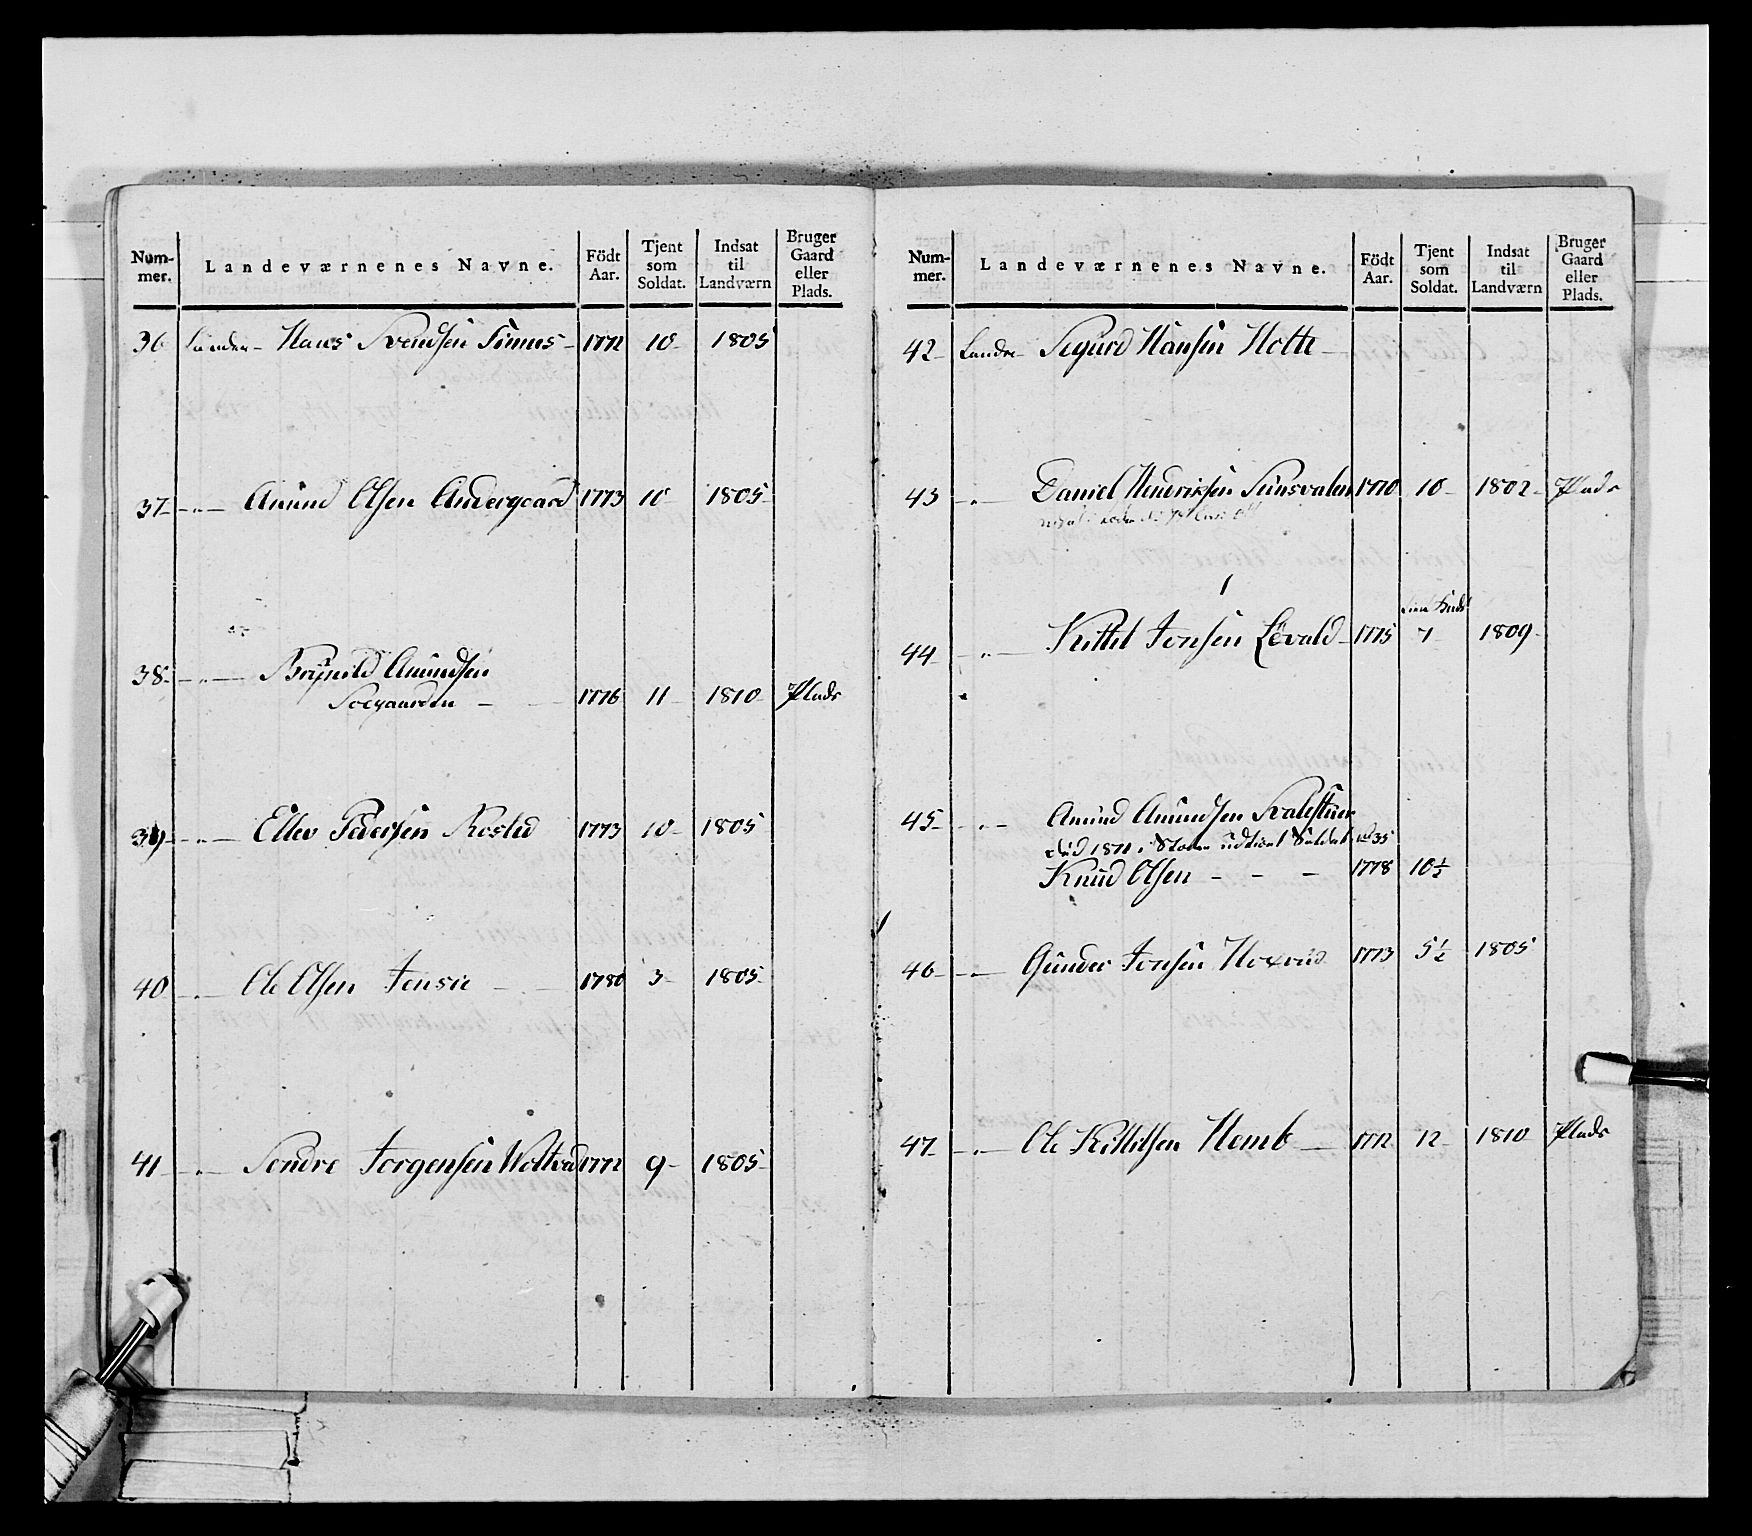 Num-
mer.
Landeværnenes Navne.
Födt
Aar.
Tjent
som
Soldat.
Indsat
til
Landværn
Bruger
Gaard
eller
Plads.
36 Lander- Hans Svendsen Simus - 1772 10- 1805
37- -"- Amund Olsen Andergaard 1773 10- 1805-
38- -"- Brÿnild Amundsen
Soegaarden - 1776 11- 1810- Plads
39- -"- Ellev Pedersen Rosted 1773 10- 1805
40 -"- Ole Olsen Jensie - 1780 3- 1805-
41 -"- Sondre Jorgensen Woltved 1772 9- 1805-
Num-
mer.
Landeværnenes Navne.
Födt
Aar.
Tjent
som
Soldat.
Indsat
til
Landværn
Bruger
Gaard
eller
Plads.
42- Lander Sigurd Hansen Holte -
43 -"- Daniel Hendriksen 1770 10- 1802- Plads
44- -"- Kittel Jonsen Lövald - 1775 7 1809-
45- -"- Amund Amundsen
død 1811 i udtient Soldat No 35
Knud Olsen - - - 1778 10½
46- -"- Gunder Jonsen Hoxrud 1773 5½ 1805
47- -"- Ole Kittilsen Hemb - 1772 12- 1810- Plads